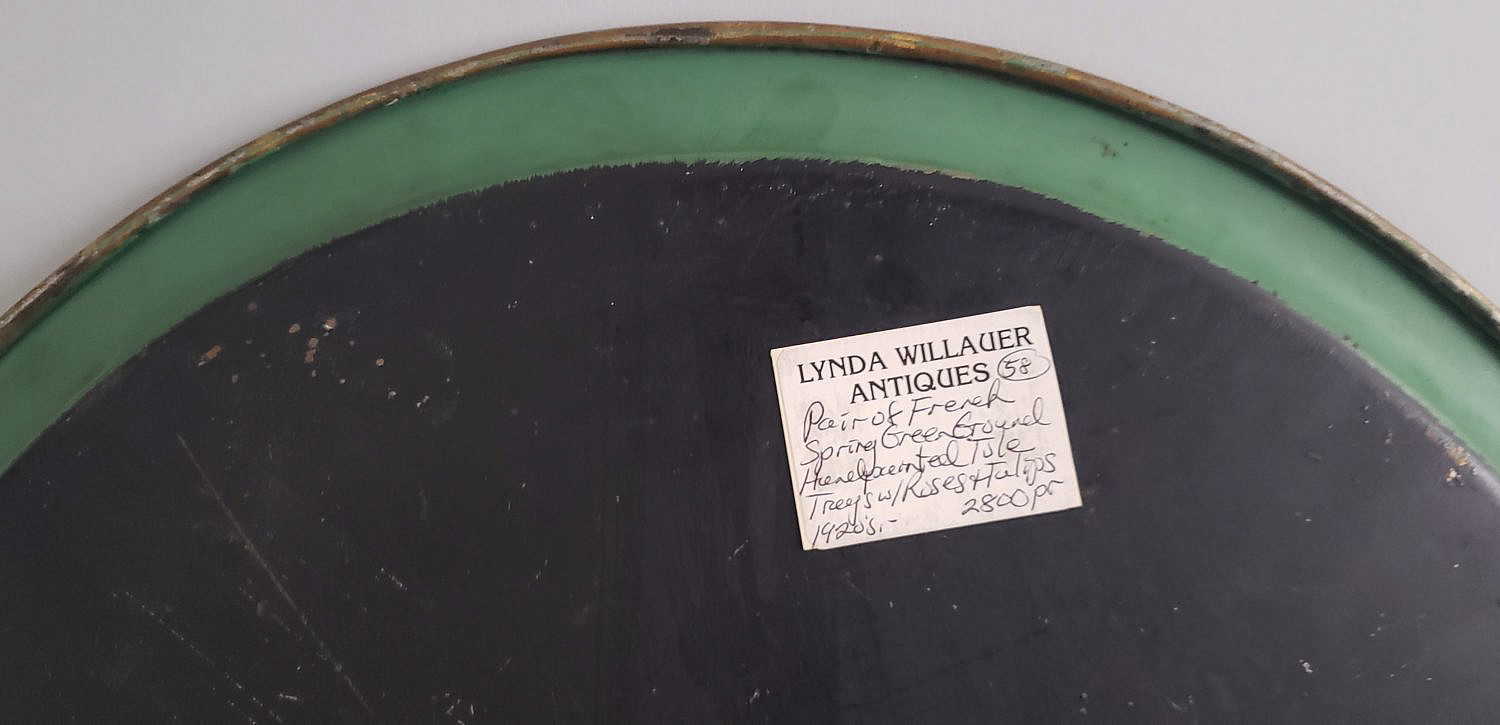 LYNDA WILLAUER
ANTIQUES 58
Pair of French
Spring Green Ground
Handpainted Tole
Trays w/ Roses & Tulips
1920's.- 2800 pr